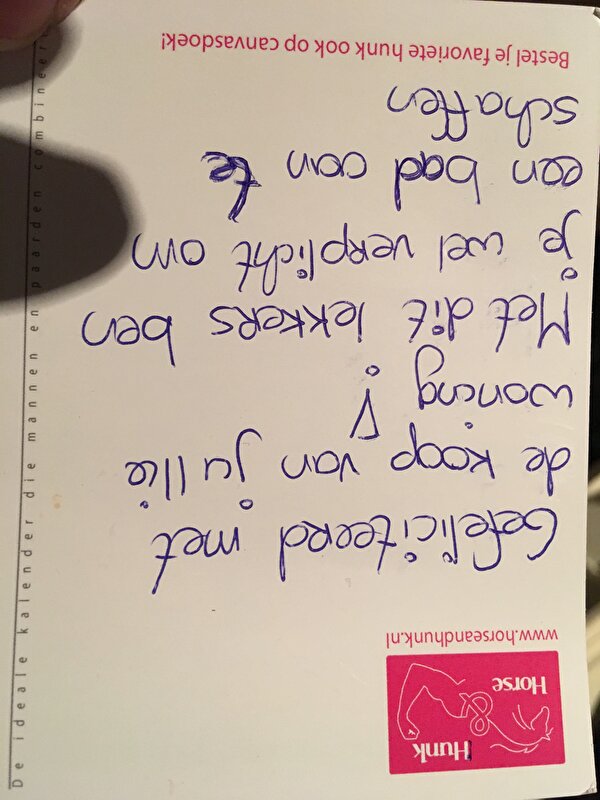 Hunk
&
Horse
www.horseandhunk.nl
Gefeliciteerd met
de koop van jullie
woning!
Met dit lekkers ben
je wel verplicht om
een bad aan te
schaffen
Bestel je favoriete hunk ook op canvasdoek!
De ideale kalender die mannen en paarden combineert